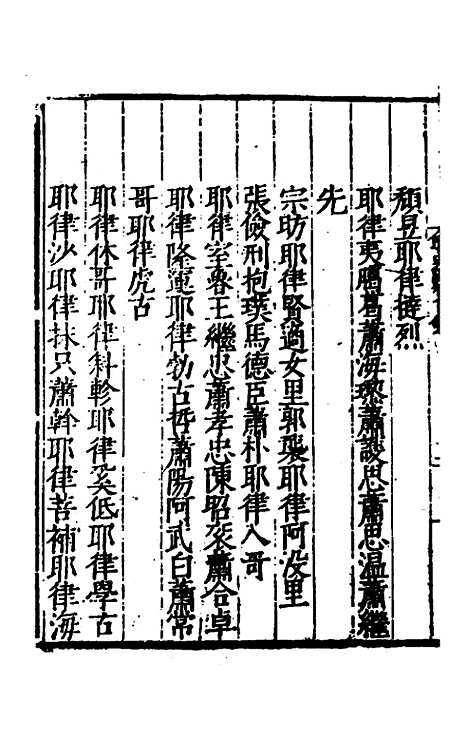 頽昱耶律撻烈
耶律夷臘葛蕭海瓈蕭護思蕭思温蕭繼
先
宗昉耶律賢適女里郭襲耶律阿没里
張儉邢抱璞馬德臣蕭朴耶律八哥
耶律室魯王繼忠蕭孝忠陳昭衮蕭合卓
耶律隆運耶律勃古哲蕭陽阿武白蕭常
哥耶律虎古
耶律休哥耶律斜軫耶律奚低耶律學古
耶律沙耶律抹只蕭幹耶律善補耶律海